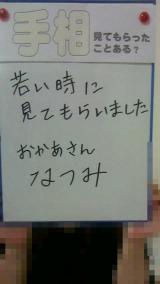 手相
見てもらった
ことある?
若い時に
見てもらいました
おかあさん
なつみ